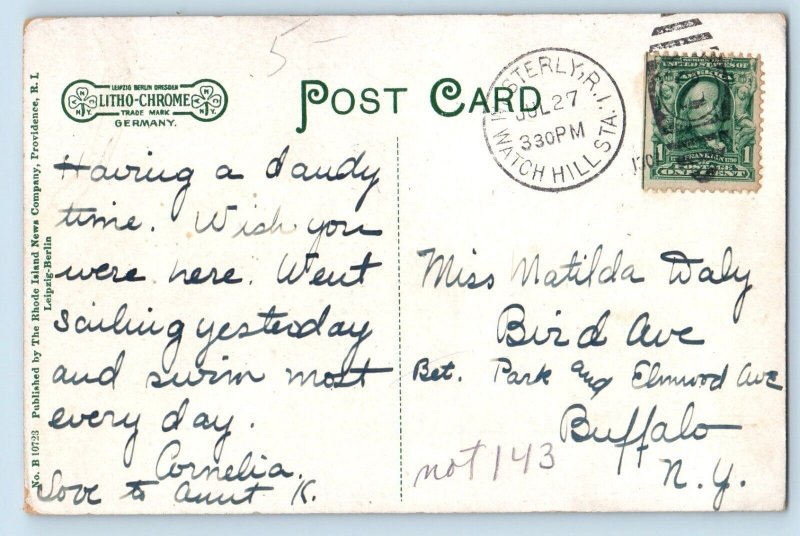 5
LEIPZIG BERLIN DRESDEN
LITHO-CHROME
TRADE MARK
GERMANY.
POST CARD
WESTERLY, R.I.
JUL 27
330PM
WATCH HILL STA.
FRANKLIN
1 1
ONE CENT
No. B 10723 Published by The Rhode Island News Company, Providence, R. I.
Leipzig-Berlin
Having a dandy
time. Wish you
were here. Went
sailing yesterday
and swim most
every day.
Cornelia.
Love to Aunt K.
Miss Matilda Daly
Bird Ave
Bet. Park and Elmwood Ave
Buffalo
N.Y.
not 143